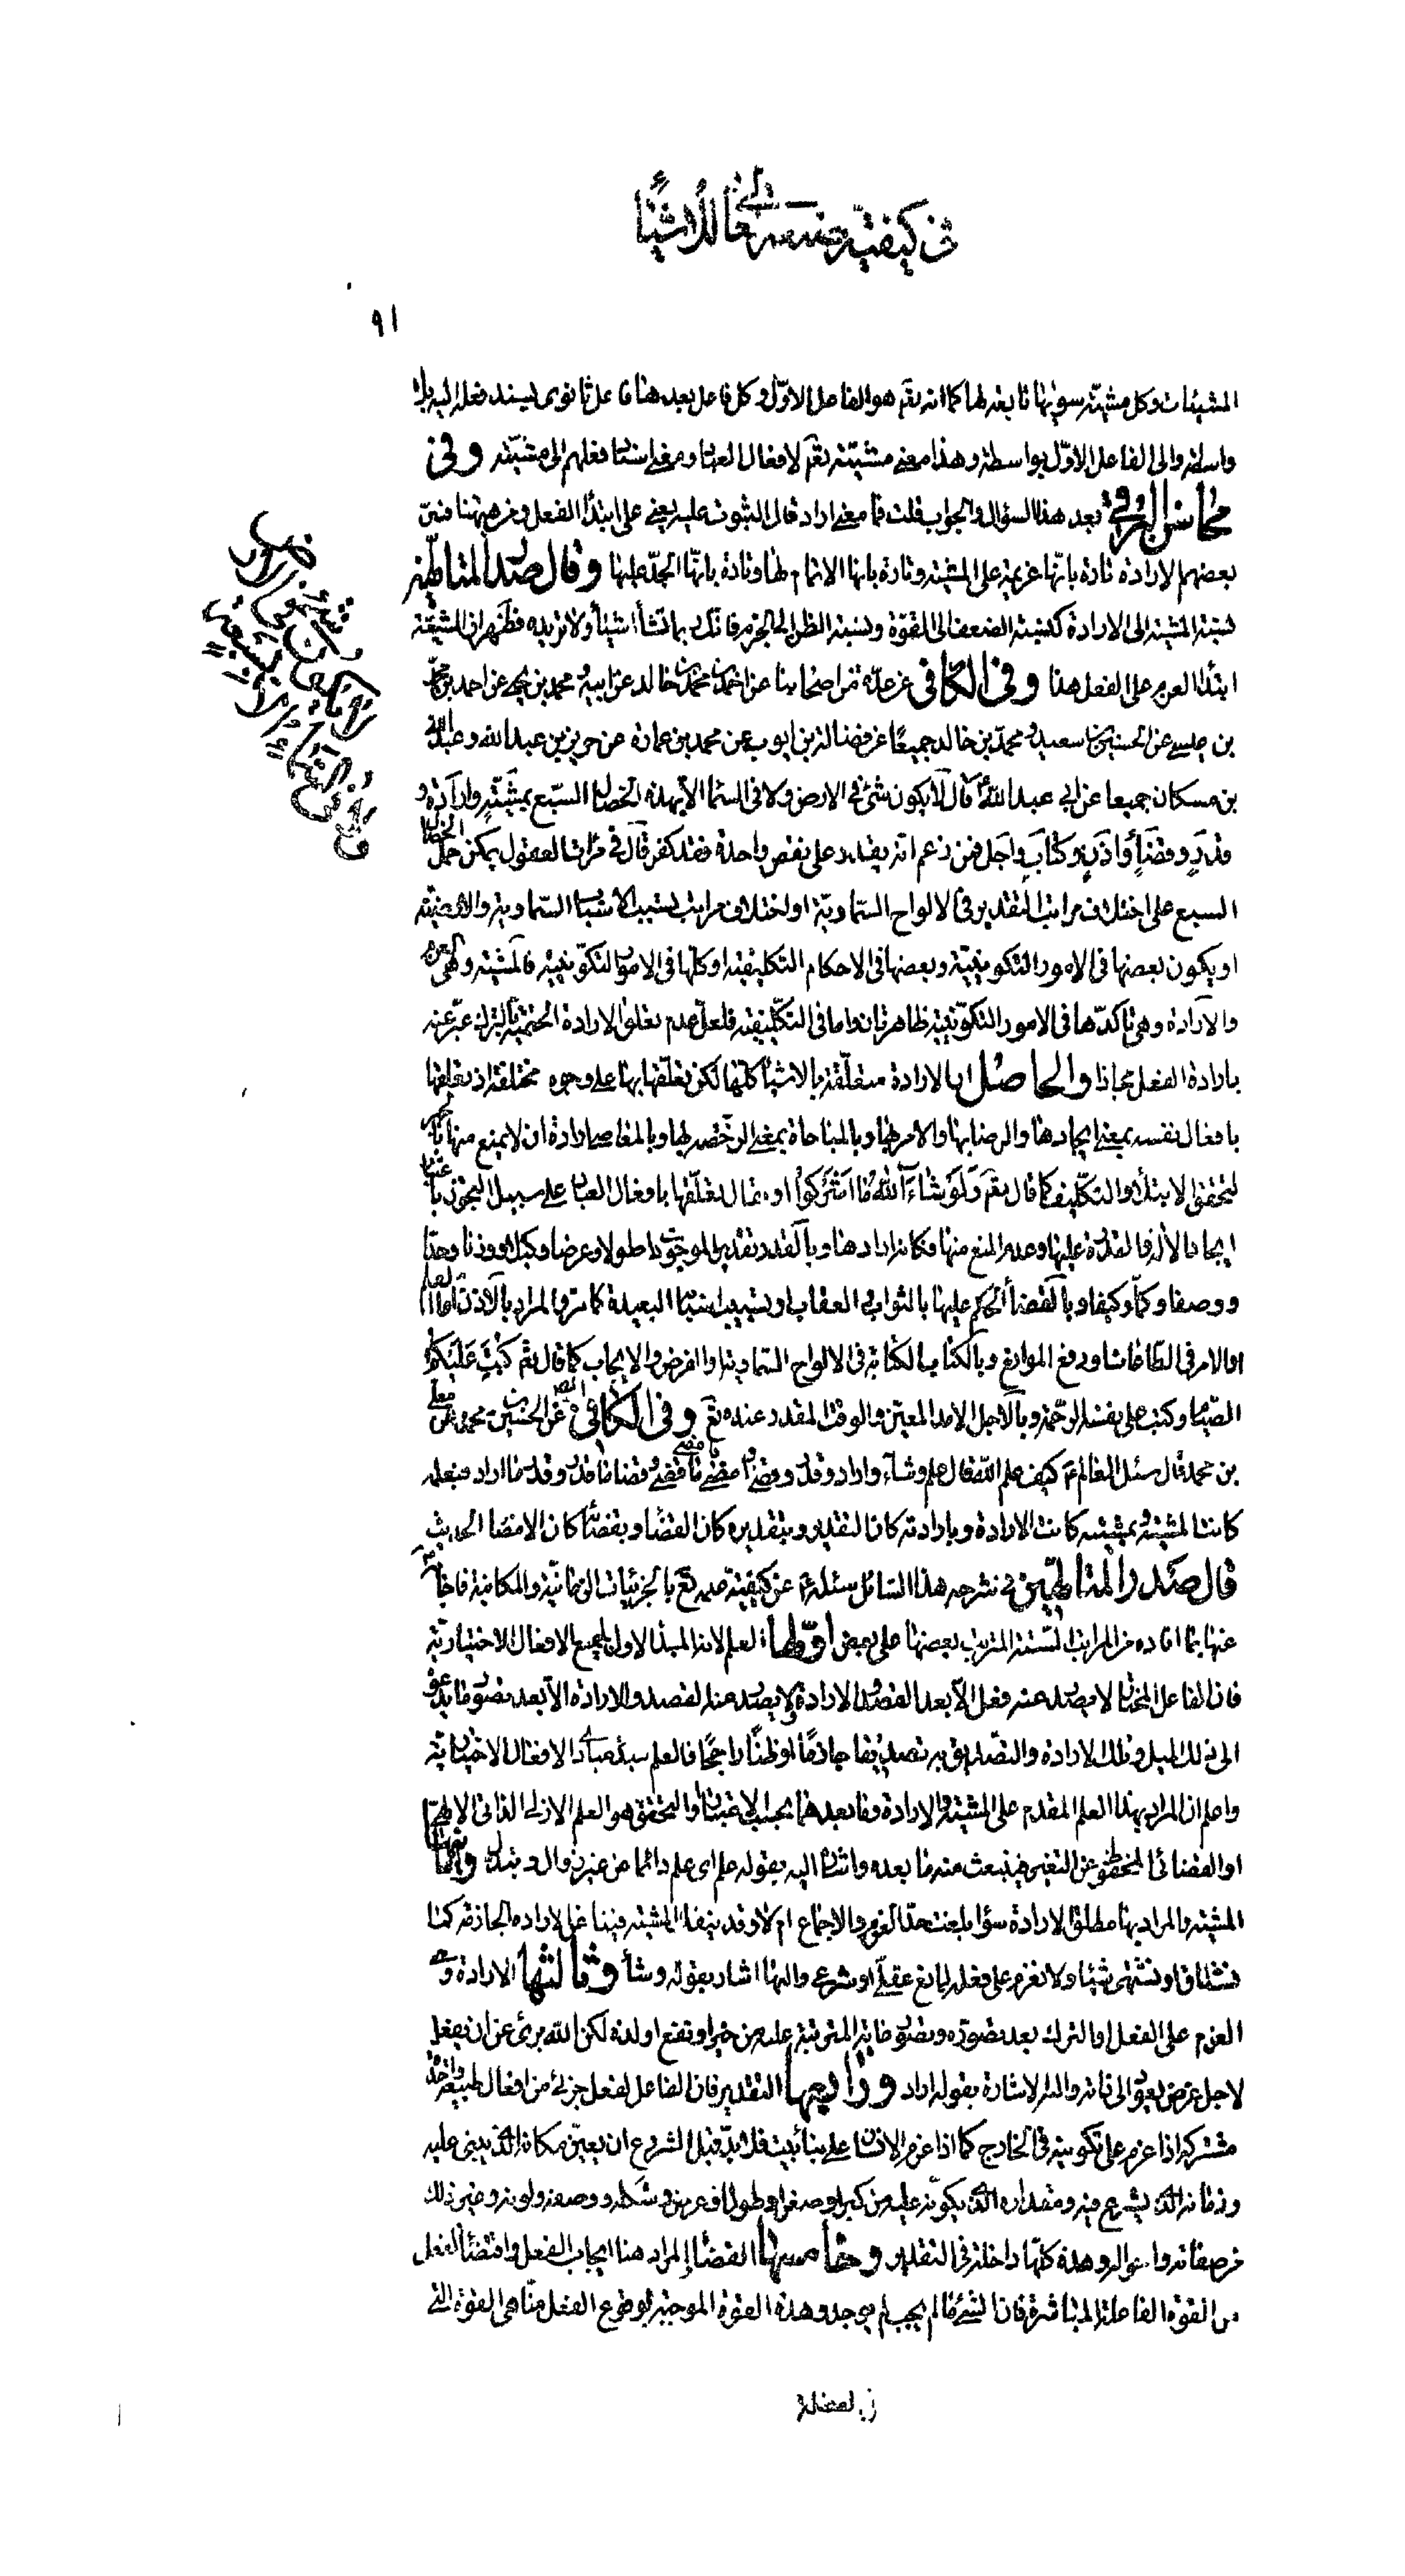 في كيفية مشيته تعالى للأشياء
٩١
المشيئات وكل مشية سويها تابعة لها كما انه تعم هو الفاعل الاول وكل فاعل بعد هنا فاعل ثانوي ليسند فعله اليه بلا
واسطة والى الفاعل الاول بواسطة وهذا معنى مشيته تعم لافعال العباد ومعنى استناد فعلهم الى مشيته وفي
محاسن البرقي بعد هذا السؤال والجواب قلت فما معنى اراد قال الثبوت عليه يعني على ابتداء الفعل ومن هيهنا فسر
بعضهم الارادة تارة بانها عزيمة على المشية وتارة بانها الاتمام لها وتارة بانها الجد عليها وقال صدر المتالهين
نسبة المشية الى الارادة كنسبة الضعف الى القوة ونسبة الظن الى الجزم فانك ربما تشاء شيئا ولا تريده فظهر ان المشية
ابتداء العزم على الفعل هذا وفي الكافي عن عدة من اصحابنا عن احمد بن محمد بن خالد عن ابيه ومحمد بن يحيى عن احمد بن محمد
بن عيسى عن الحسين بن سعيد ومحمد بن خالد جميعا عن فضالة بن ايوب عن محمد بن عمارة عن حريز بن عبد الله وعبد الله
بن مسكان جميعا عن ابي عبد الله قال لا يكون شئ في الارض ولا في السماء الا بهذه الخصال السبع بمشية وارادة و
قدر وقضاء واذن وكتاب واجل فمن زعم انه يقدر على نقص واحدة فقد كفر قال في مرات العقول يمكن حمل الخصال
السبع على اختلاف مراتب التقدير في الالواح السماوية او اختلاف مراتب تسبب الاسباب السماوية والارضية
او يكون بعضها في الامور التكوينية وبعضها في الاحكام التكليفية او كلها في الامور التكوينية فالمشية وهي العزم
والارادة وهي تاكدها في الامور التكوينية ظاهرتان واما في التكليفية فلعل عدم تعلق الارادة الحتمية بالترك عبر عنه
بارادة الفعل مجازا والحاصل ان الارادة متعلقة بالاشياء كلها لكن تعلقها بها على وجوه مختلفة اذ تعلقها
بافعال نفسه بمعنى ايجادها والرضا بها والامر بها وبالمباحاة بمعنى الرخصة لها وبالمعاصي ارادة ان لا يمنع منها بالجبر
لتحقق الابتلاء والتكليف كما قال تعم ولو شاء الله ما اشركوا او يقال تعلقها بافعال العباد على سبيل التجوز باعتبار
ايجاد الالة والقدرة عليها وعدم المنع منها فكانه ارادها وبالقدر تقدير الموجودات طولا وعرضا وكيلا ووزنا وحدا
ووصفا وكما وكيفا وبالقضاء الحكم عليها بالثواب والعقاب او تسبيب اسبابها البعيدة كما مر والمراد بالاذن اما العلم
او الامر في الطاعات او رفع الموانع وبالكتاب الكتابة في الالواح السماوية او الفرض والايجاب كما قال تعم كتب عليكم
الصيام وكتب على نفسه الرحمة وبالاجل الامد المعين والوقت المقدر عنده تعم وفي الكافي عن الحسين بن محمد عن معلى
بن محمد قال سئل العالم ع كيف علم الله قال علم وشاء واراد وقدر وقضى وامضى فامضى ما قضى وقضى ما قدر وقدر ما اراد فبعلمه
كانت المشية وبمشيته كانت الارادة وبارادته كان التقدير وبتقديره كان القضاء وبقضائه كان الامضاء الحديث
قال صدر المتالهين في شرحه هذا السائل سئله ع عن كيفية علمه تعم بالجزئيات الزمانية والمكانية فاجاب ع
عنها بما افاده من المراتب الستة المترتب بعضها على بعض اولها العلم لانه المبدا الاول لجميع الافعال الاختيارية
فان الفاعل المختار لا يصدر عنه فعل الا بعد القصد والارادة ولا يصدر عنه القصد والارادة الا بعد تصور ما يدعوه
الى ذلك الميل وتلك الارادة والتصديق به تصديقا جازما او ظنا راجحا فالعلم مبدء مبادى الافعال الاختيارية
واعلم ان المراد بهذا العلم المقدم على المشية والارادة وما بعدهما بحسب الاعتبار او التحقق هو العلم الازلى الذاتى الالهي
او القضائى المحفوظ عن التغير فينبعث منه ما بعده واشار اليه بقوله علم اى علم دائما من غير زوال وتبدل وثانيها
المشية والمراد بها مطلق الارادة سواء بلغت حد العزم والاجماع ام لا وقد ينفك المشية فينا عن الارادة الجازمة كما
نشتاق او نشتهى شيئا ولا نعزم على فعله لمانع عقلى او شرعى واليها اشار بقوله وشاء وثالثها الارادة وهي
العزم على الفعل او الترك بعد تصوره وتصور غايته المترتبة عليه من خير او نفع او لذة لكن الله برئ عن ان يفعل
لاجل غرض يعود الى ذاته واليه الاشارة بقوله اراد ورابعها التقدير فان الفاعل لفعل جزئى من افعال طبيعة واحدة
مشتركة اذا عزم على تكوينه في الخارج كما اذا عزم الانسان على بناء بيت فلابد قبل الشروع ان يعين مكانه الذي يبنى عليه
وزمانه الذي يشرع فيه ومقداره الذي يكونه عليه من كبر او صغر او طول او عرض وشكله ووصفه ولونه وغير ذلك
من صفاته واحواله وهذه كلها داخلة في التقدير وخامسها القضاء والمراد هنا ايجاب الفعل واقتضاء الفعل
من القوة الفاعلة المباشرة فان الشئ ما لم يجب لم يوجد وهذه القوة الموجبة لوقوع الفعل منا هي القوة التي